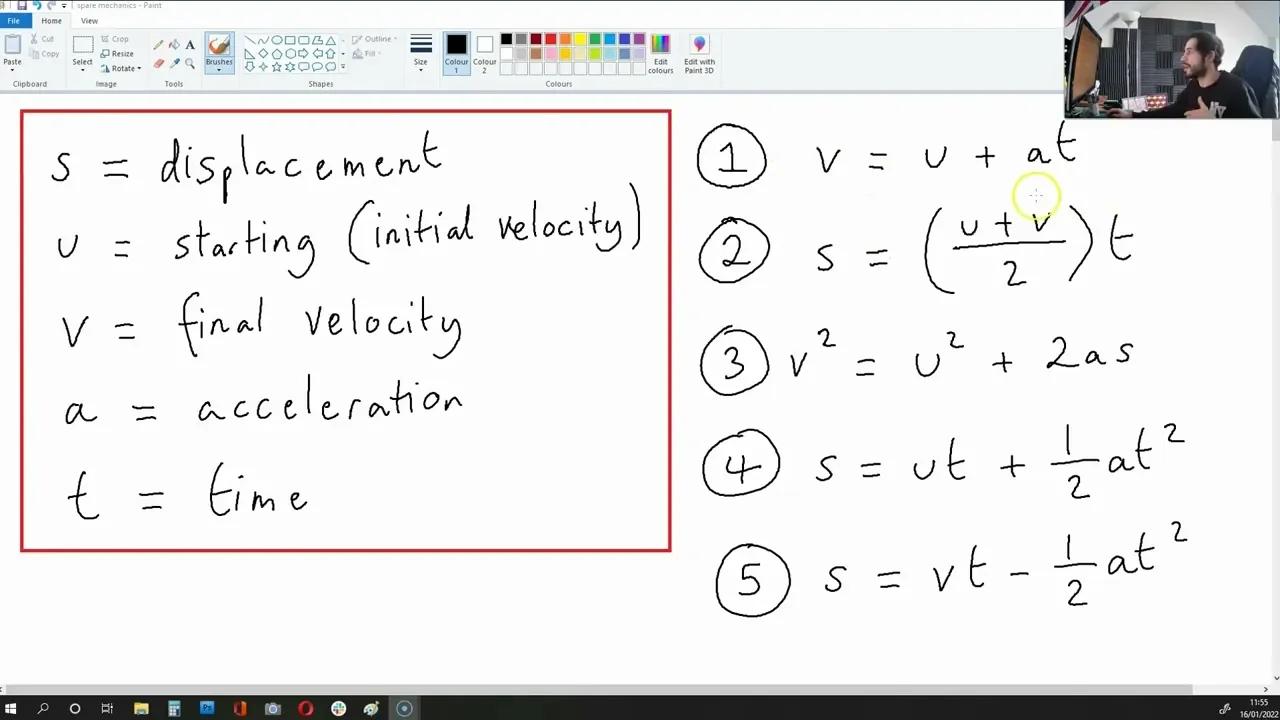 spare mechanics - Paint
File Home View
Paste
Cut
Copy
Clipboard
Select
Crop
Resize
Rotate
Image
Tools
Brushes
Shapes
Outline
Fill
Size
Colour 1
Colour 2
Colours
Edit colours
Edit with Paint 3D
s = displacement
u = starting (initial velocity)
v = final velocity
a = acceleration
t = time
① v = u + at
② s = ((u + v)/2) t
③ v² = u² + 2as
④ s = ut + 1/2 at²
⑤ s = vt - 1/2 at²
11:55
16/01/2022